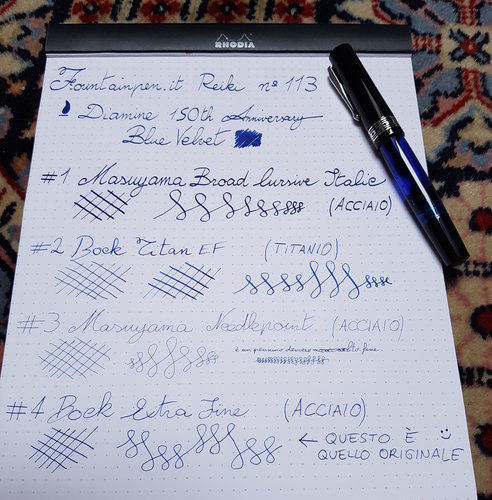 RHODIA
Fountainpen.it Reiki nº 113
Diamine 150th Anniversary
Blue Velvet
#1 Masuyama Broad Cursive Italic
(ACCIAIO)
#2 Bock Titan EF (TITANIO)
#3 Masuyama Needlepoint (ACCIAIO)
è un pennino davvero molto fine
#4 Bock Extra Fine (ACCIAIO)
← QUESTO È :)
QUELLO ORIGINALE